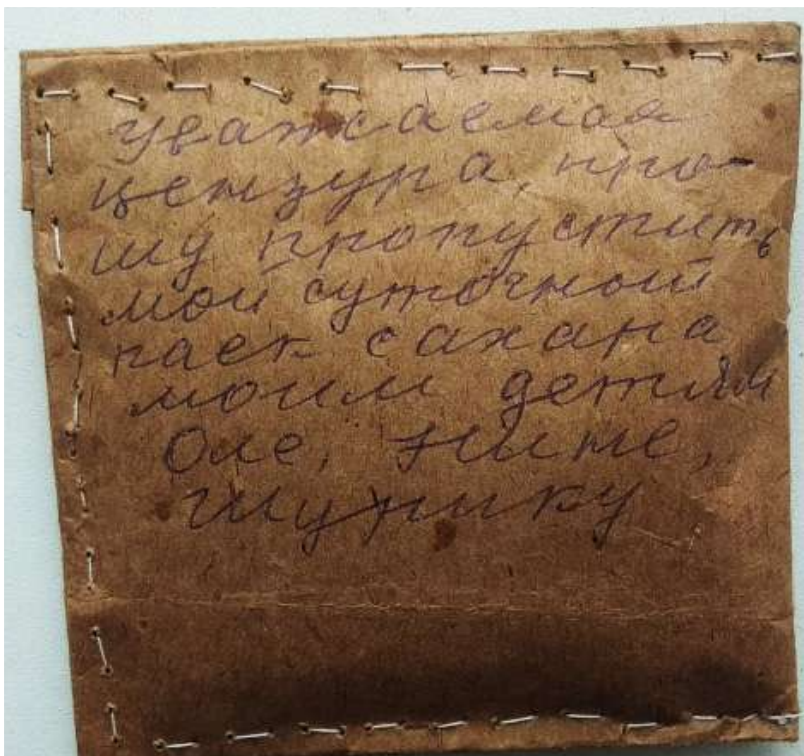 Уважаемая
цензура, про-
шу пропустить
мой суточный
паек сахара
моим детям
Оле, Нине,
Шунику